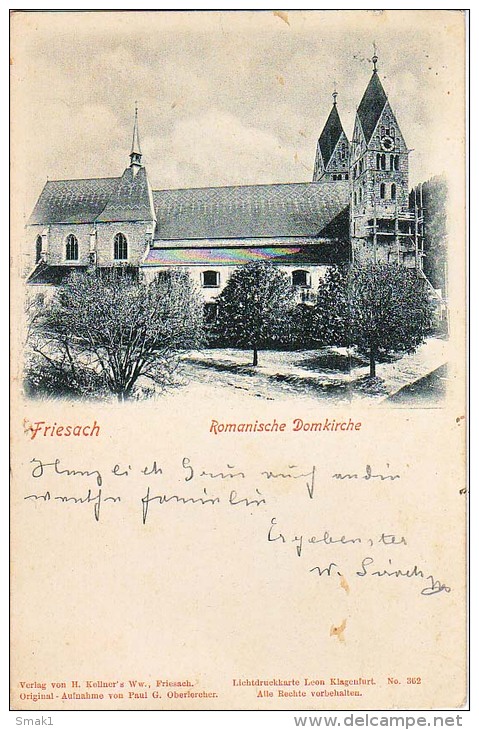 Friesach
Romanische Domkirche
Gruss auch an
werthe Familie
Ergebenster
W.
Verlag von H. Kellner's Ww., Friesach.
Original-Aufnahme von Paul G. Oberlercher.
Lichtdruckkarte Leon Klagenfurt. No. 362
Alle Rechte vorbehalten.
Smak1
www.delcampe.net